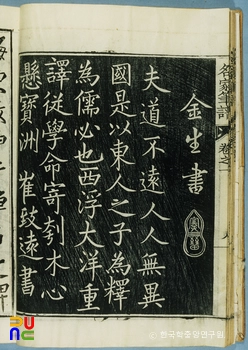 名家筆譜 卷之一
金生書
夫道不遠人人無異
國是以東人之子為釋
為儒必也西浮大洋重
譯從學命寄刳木心
懸寶洲 崔致遠書
한국학중앙연구원